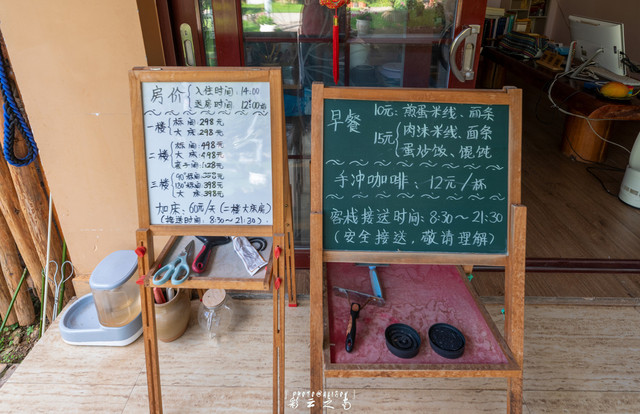 房价
入住时间:14:00
退房时间:12:00前
一楼
标间 298元
大床 298元
二楼
标间 498元
大床 498元
亲子间
三楼
90°标间 398元
120°标间 398元
大床 398元
加床:60元/天(二楼大族房)
(接送时间:8:30~21:30
早餐
10元:煎蛋米线、面条
15元
肉沫米线、面条
蛋炒饭、馄饨
手冲咖啡:12元/杯
客栈接送时间:8:30~21:30
(安全接送,敬请理解)
彩云之南